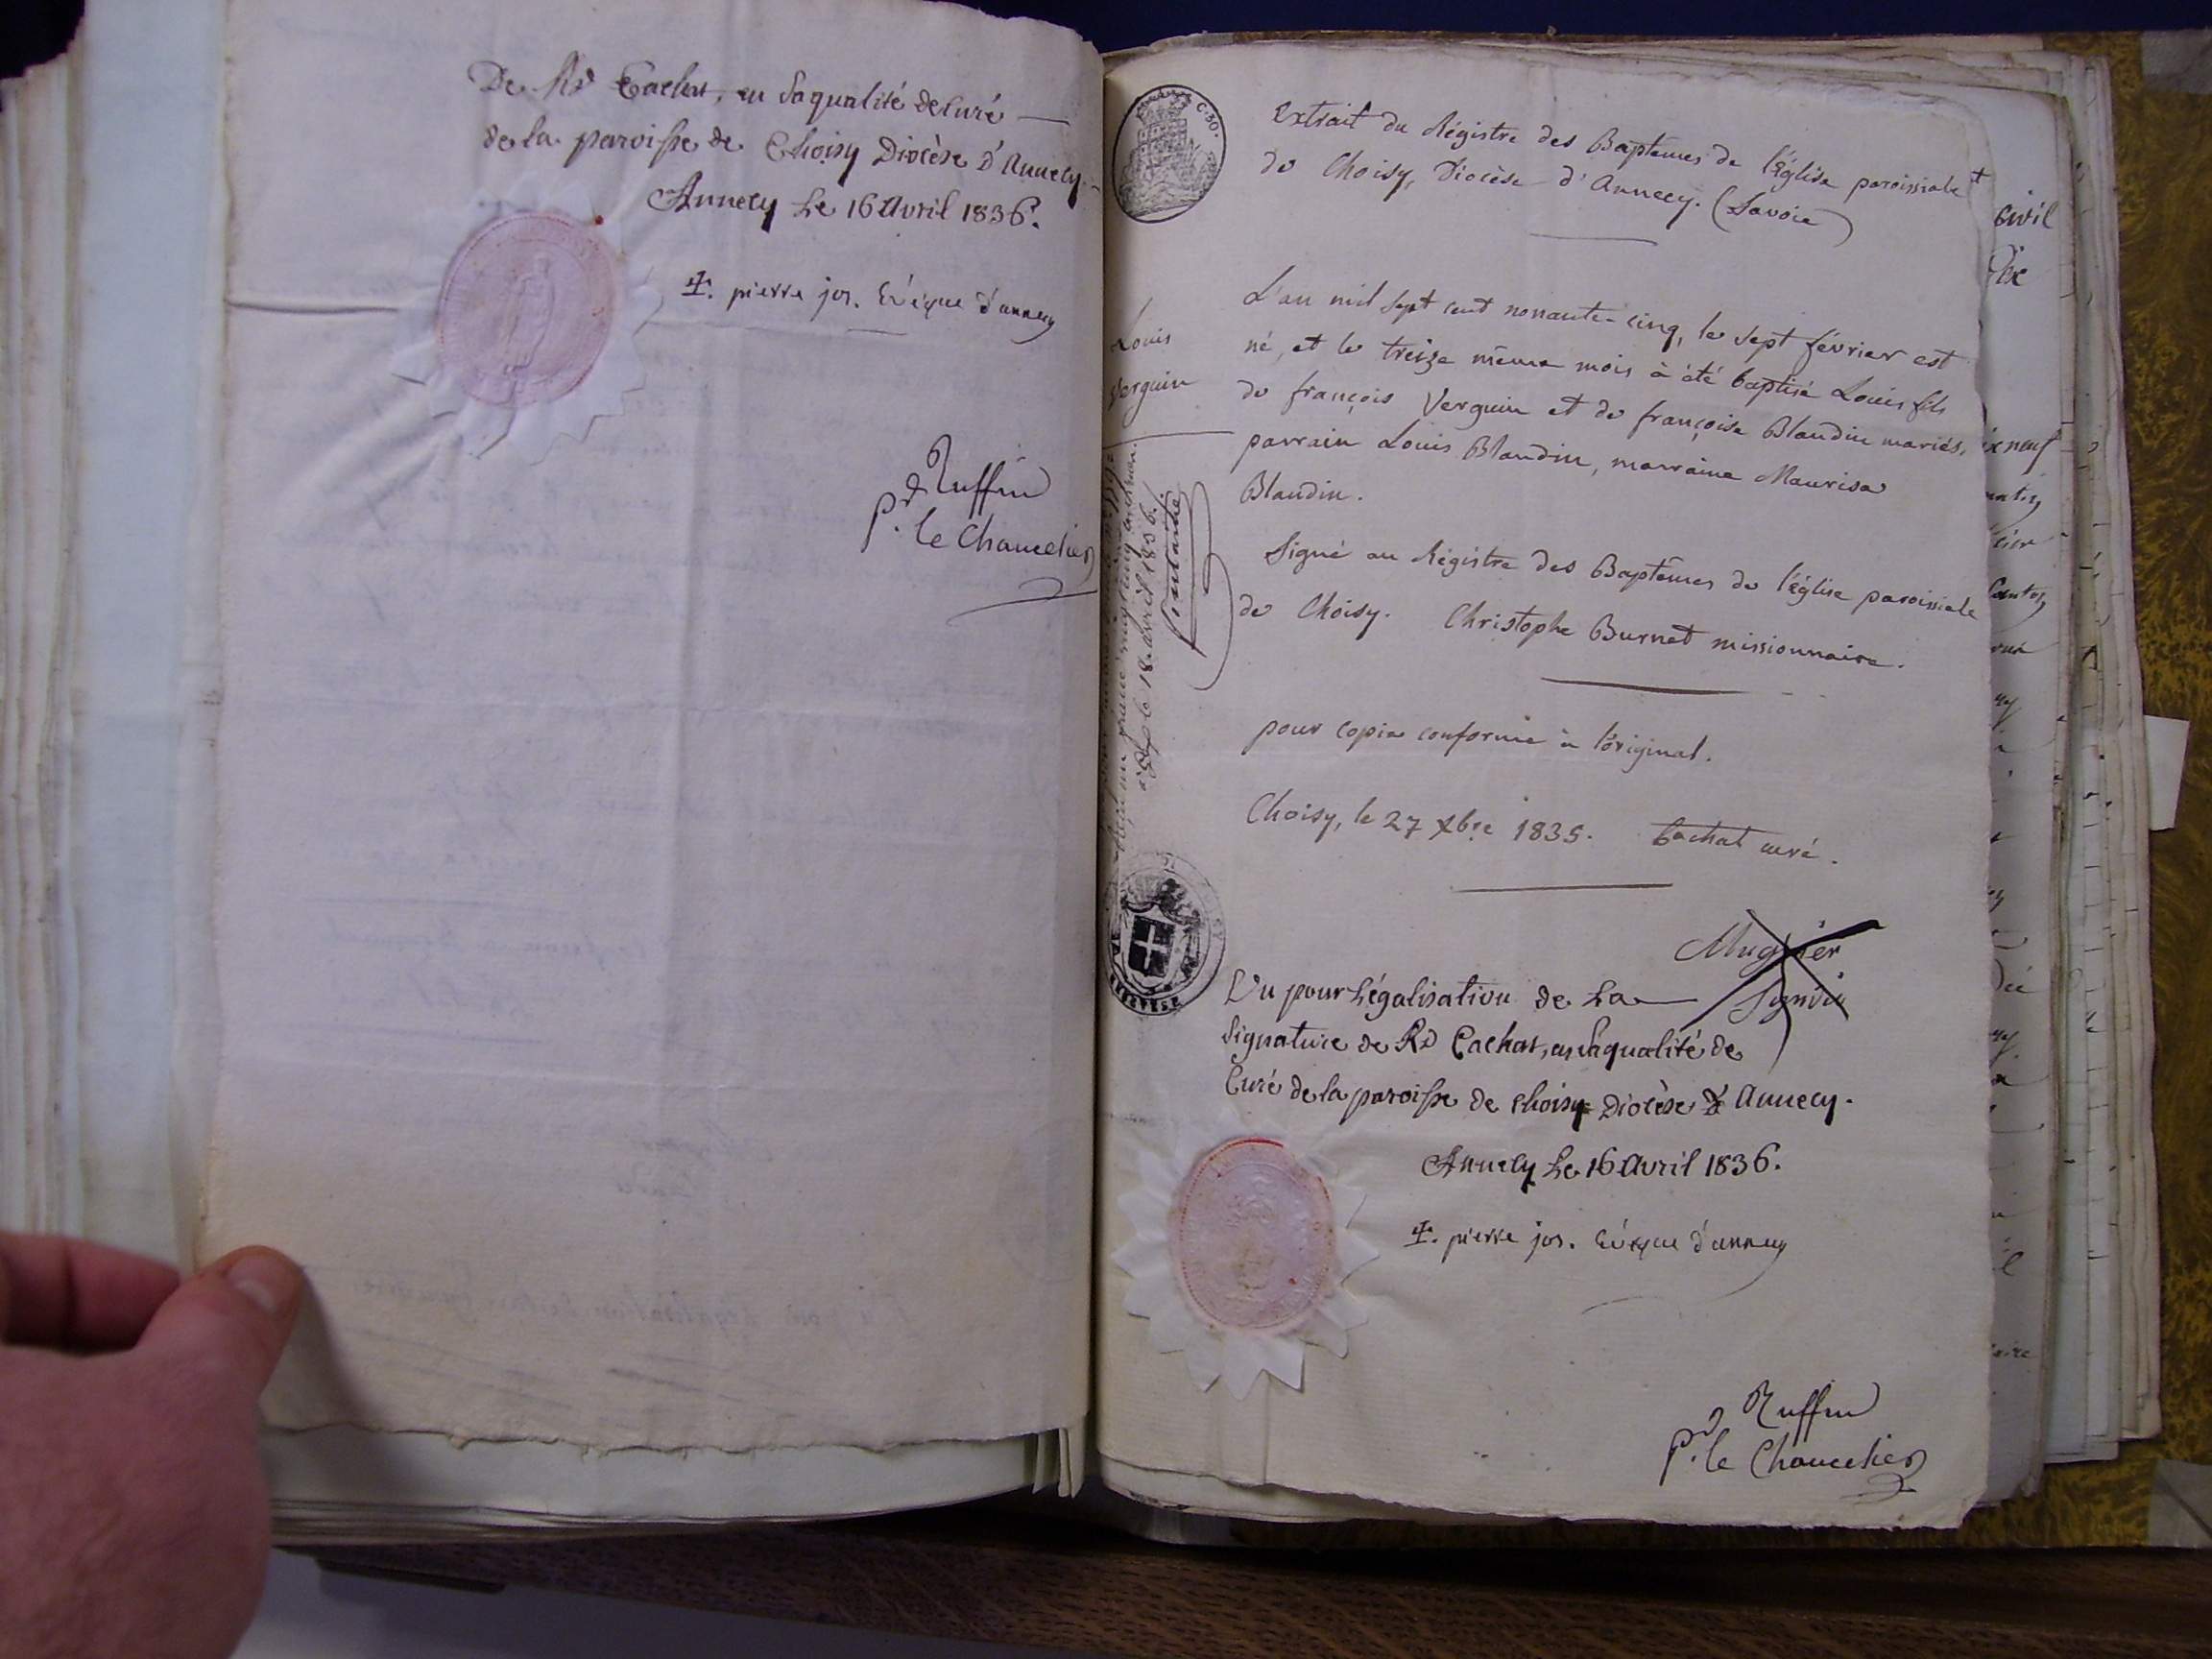 De Rd Cachat, en Sa qualité de Curé
de la paroisse de Choisy Diocèse D'Annecy.
Annecy Le 16 Avril 1836.
✝. pierre jos. Evêque d'annecy
Ruffin
pr. le Chancelier
C. 30.
Extrait du Régistre des Baptemes de l'église paroissiale
de Choisy, Diocèse d'Annecy. (Savoie)
Louis
Verguin
L'an mil sept cent nonante-cinq, le sept février est
né, et le treize même mois à été baptisé Louis fils
de françois Verguin et de françoise Blandin mariés,
parrain Louis Blandin, marraine Maurisa
Blandin.
Signé au Régistre des Baptêmes de l'église paroissiale
de Choisy. Christophe Burnet missionnaire.
pour copie conforme à l'original.
Choisy, le 27 Xbre 1835. Cachat curé.
le 18 avril 1836
Mugnier
Sindic
Vu pour Légalisation de La
Signature de Rd Cachat, en Sa qualité de
Curé de la paroisse de Choisy Diocèse D'Annecy.
Annecy Le 16 Avril 1836.
✝. pierre jos. Evêque d'annecy
Ruffin
pr. le Chancelier
civil